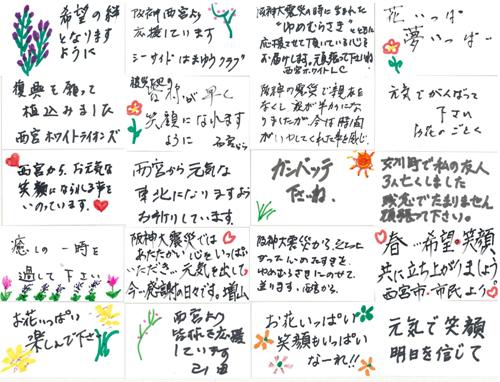 希望の絆
となります
ように
阪神西宮より
応援しています
シーサイドはまゆうクラブ
阪神大震災の時に生まれた
"ゆめむらさき"とともに
応援させて頂いている心を
お届けします。頑張って下さいね
西宮ホワイトLC
花いっぱい
夢いっぱい
復興を願って
植込みました
西宮ホワイトライオンズ
被災地の
皆様が早く
笑顔になれます
ように
西宮から
阪神の震災で親友を
なくし
時間
がいやしてくれた事を感じ
元気でがんばって
下さい
お花のごとく
西宮から、お元気な
笑顔になられる事を
いのっています。
西宮から元気な
東北になりますよう
お祈りしています。
ガンバッテ
下さいね。
女川町で私の友人
3人亡くしました
残念でたまりません
頑張って下さい。
癒しの一時を
過して下さい
阪神大震災では
あたたかい心をいっぱい
いただき…元気を出して
今…感謝の日々です。増山
阪神大震災から
ゆめむらさきにのせて
送ります。西宮から。
春…希望・笑顔
共に立ち上がりましょう
西宮市・市民より
お花いっぱい
楽しんで下さい
西宮より
皆様を応援
しています
お花いっぱい
笑顔もいっぱい
なーれ!!
元気で笑顔
明日を信じて